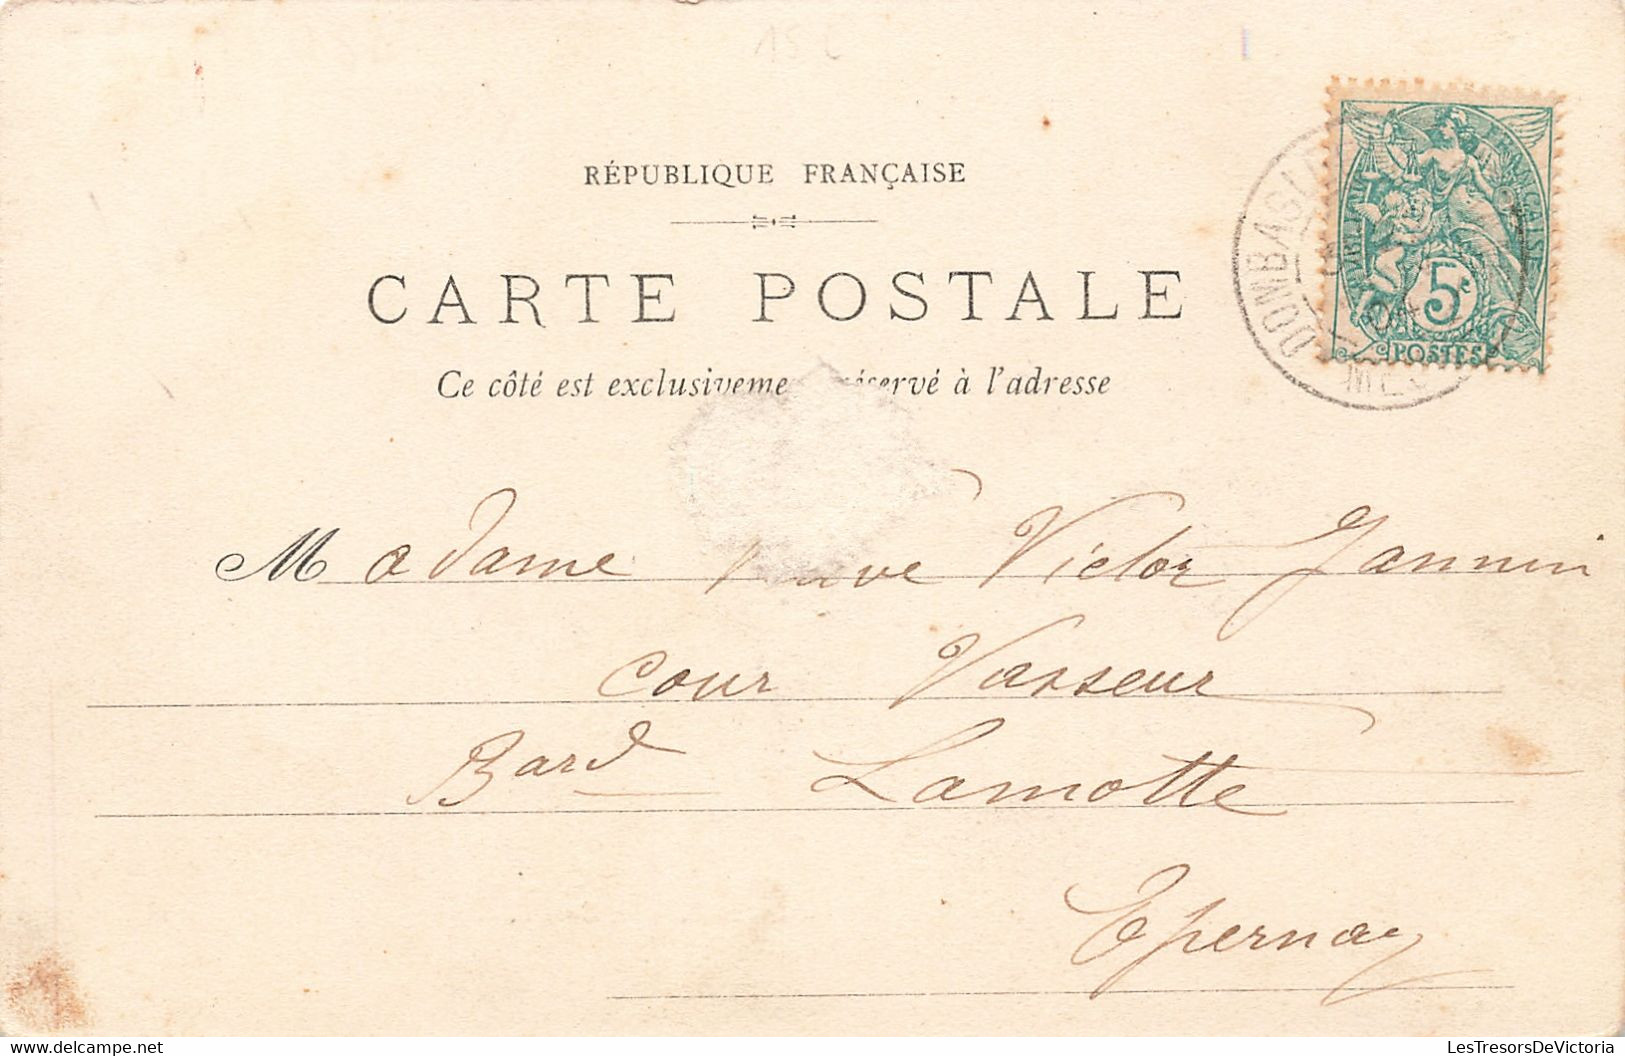 15 c
RÉPUBLIQUE FRANÇAISE
CARTE POSTALE
Ce côté est exclusiveme éservé à l'adresse
Madame Victor Jannin
Cour Vasseur
Bard Lamotte
Epernay
REPUBLIQUE FRANÇAISE
5c
POSTES
DOMBASLE
04
LesTresorsDeVictoria
www.delcampe.net